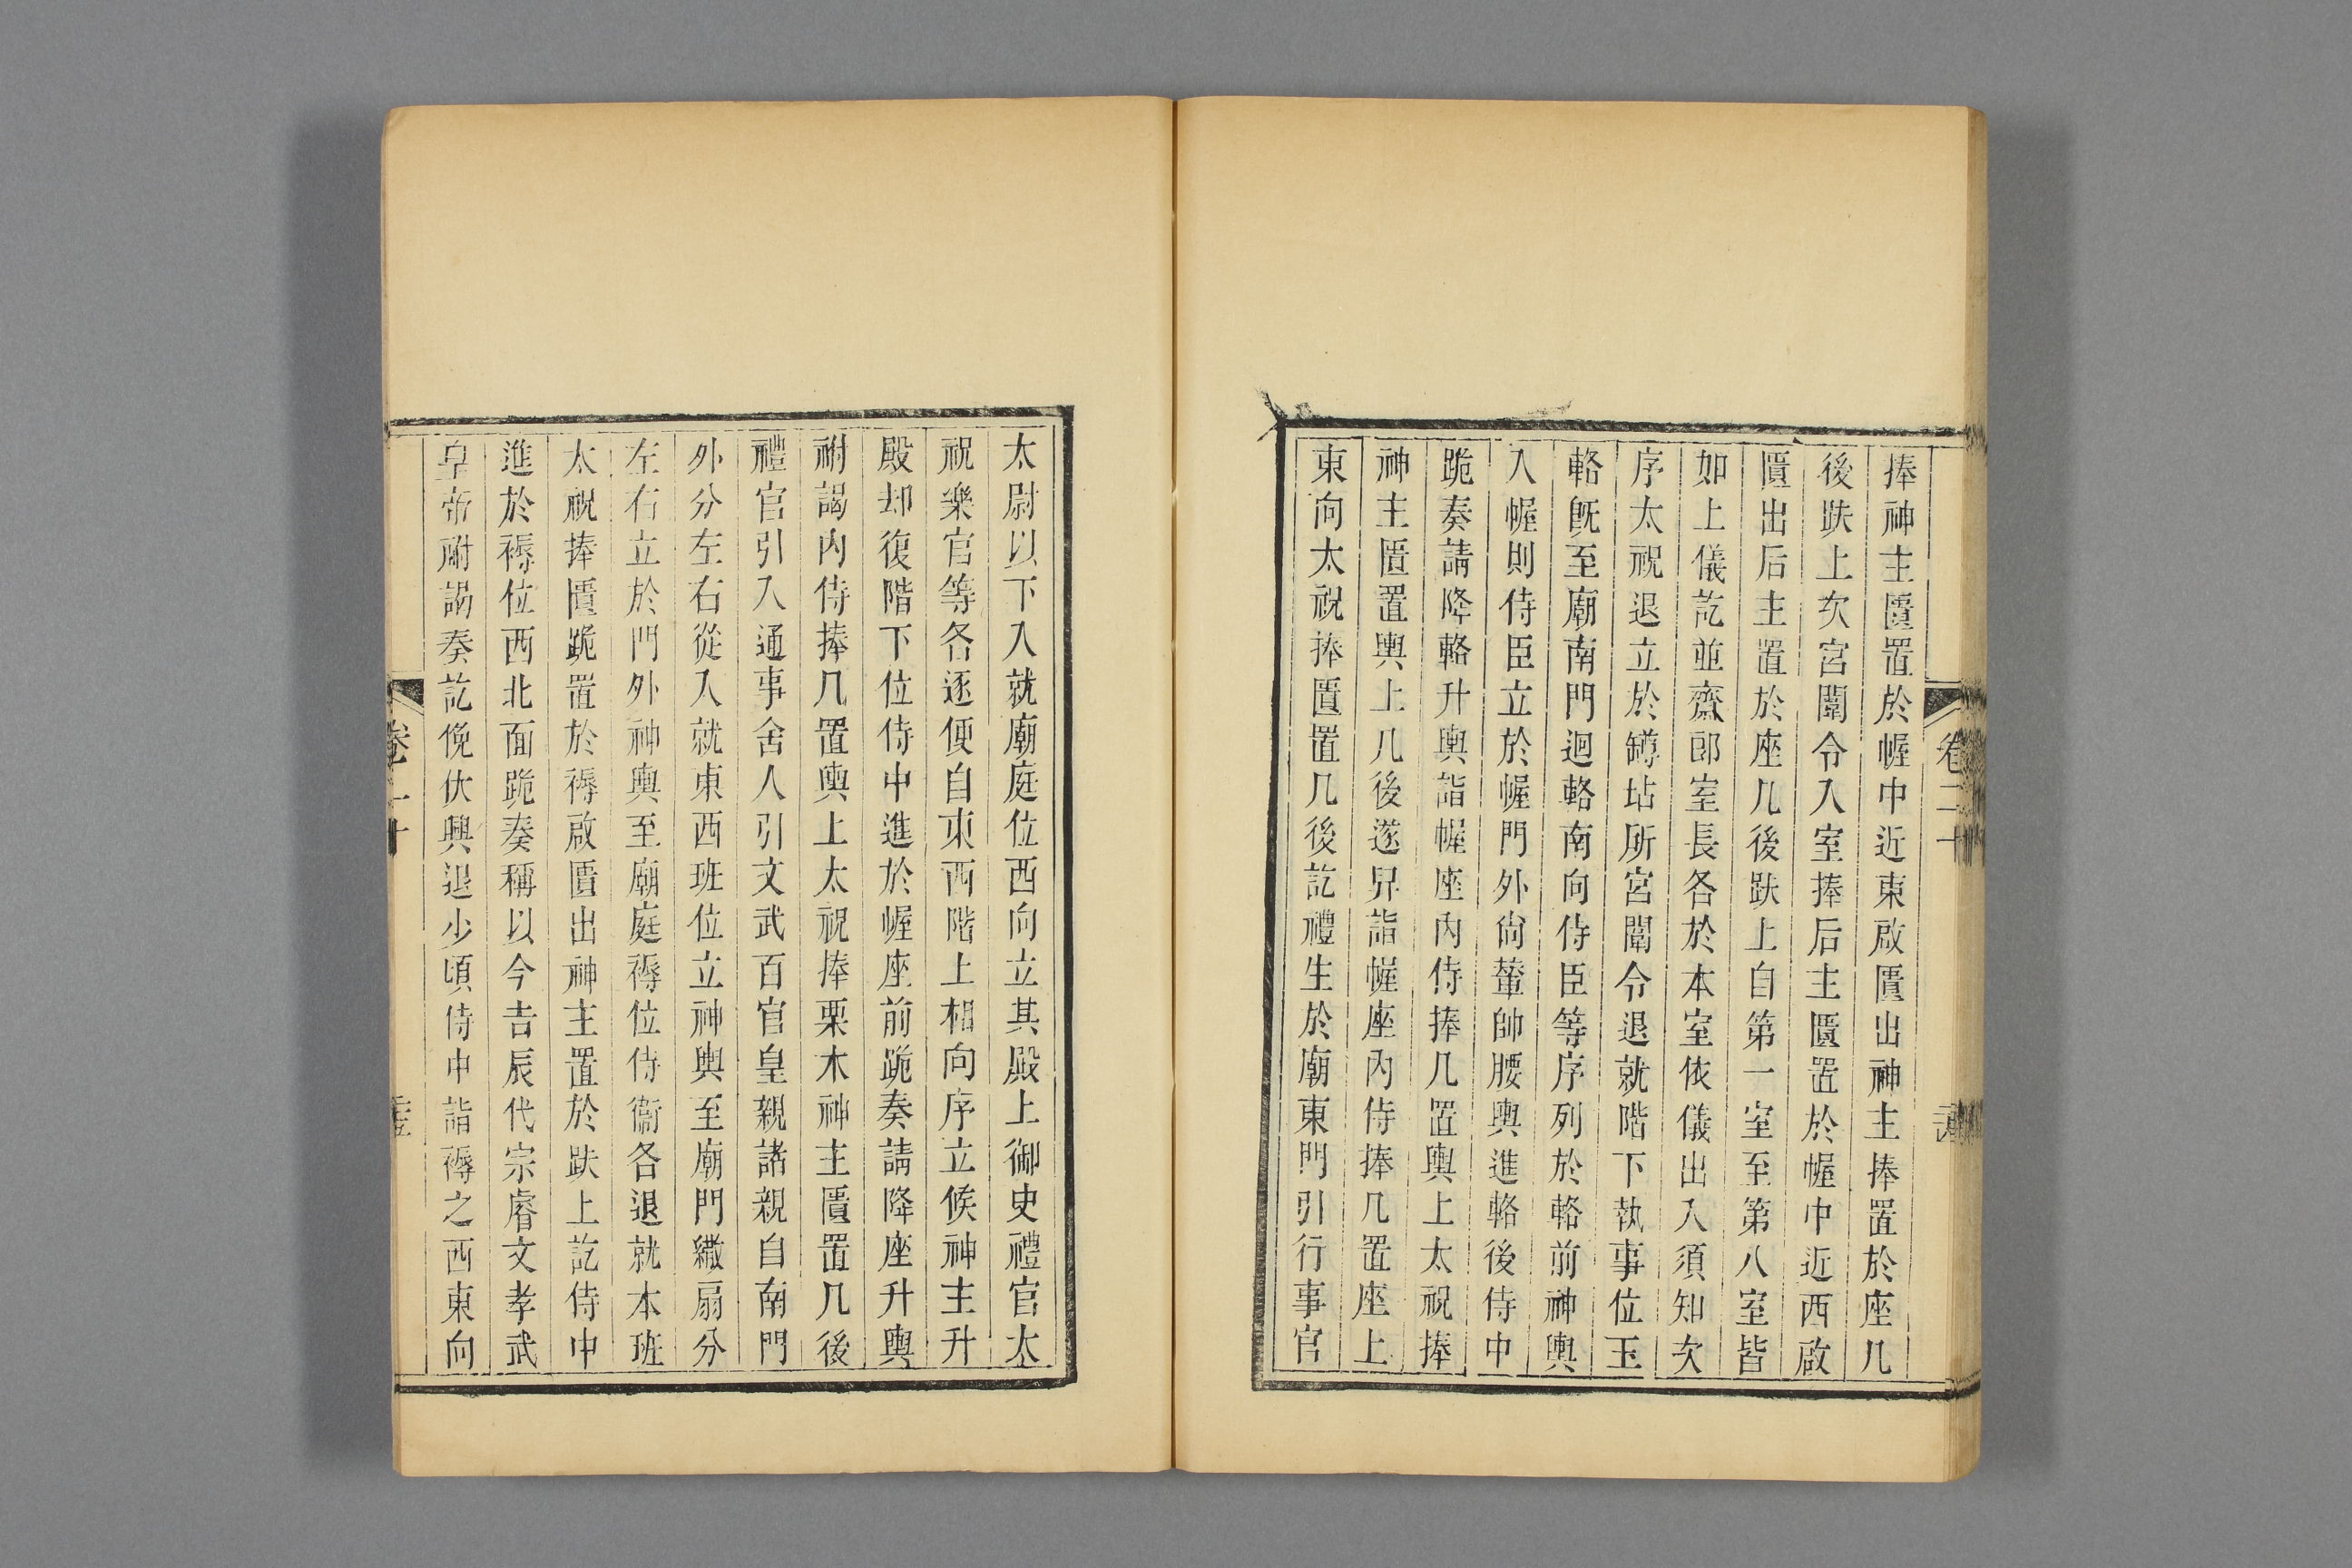 捧神主匱置於幄中近東啟匱出神主捧置於座几
後趺上次宮闈令入室捧后主匱置於幄中近西啟
匱出后主置於座几後趺上自第一室至第八室皆
如上儀訖並齋郎室長各於本室依儀出入須知次
序太祝退立於罇坫所宮闈令退就階下執事位玉
輅既至廟南門迴輅南向侍臣等序列於輅前神輿
入幄則侍臣立於幄門外尙輦帥腰輿進輅後侍中
跪奏請降輅升輿詣幄座內侍捧几置輿上太祝捧
神主匱置輿上几後遂舁詣幄座內侍捧几置座上
東向太祝捧匱置几後訖禮生於廟東門引行事官
卷二十
太尉以下入就廟庭位西向立其殿上御史禮官太
祝樂官等各逐便自東西階上相向序立候神主升
殿却復階下位侍中進於幄座前跪奏請降座升輿
祔謁內侍捧几置輿上太祝捧栗木神主匱置几後
禮官引入通事舍人引文武百官皇親諸親自南門
外分左右從入就東西班位立神輿至廟門繖扇分
左右立於門外神輿至廟庭褥位侍衞各退就本班
太祝捧匱跪置於褥啟匱出神主置於趺上訖侍中
進於褥位西北面跪奏稱以今吉辰代宗睿文孝武
皇帝祔謁奏訖俛伏興退少頃侍中詣褥之西東向